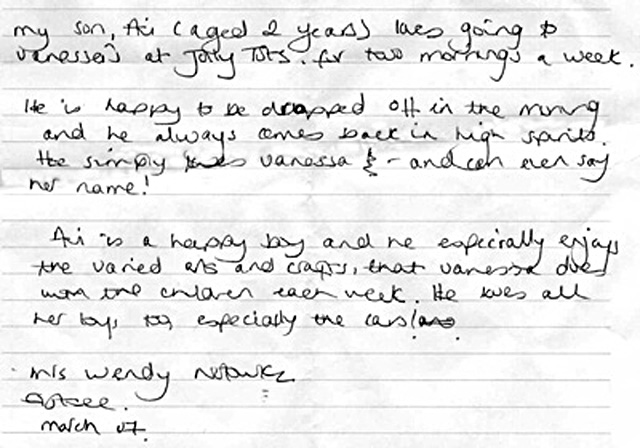 my son, Ari (aged 2 years) loves going to
Vanessa's at Jolly Tots. for two mornings a week.
He is happy to be dropped off in the morning
and he always comes back in high spirits.
He simply loves Vanessa & - and can even say
her name!
Ari is a happy boy and he especially enjoys
the varied arts and crafts, that Vanessa does
with the children each week. He loves all
her toys too, especially the cars!
Mrs Wendy
March 07.